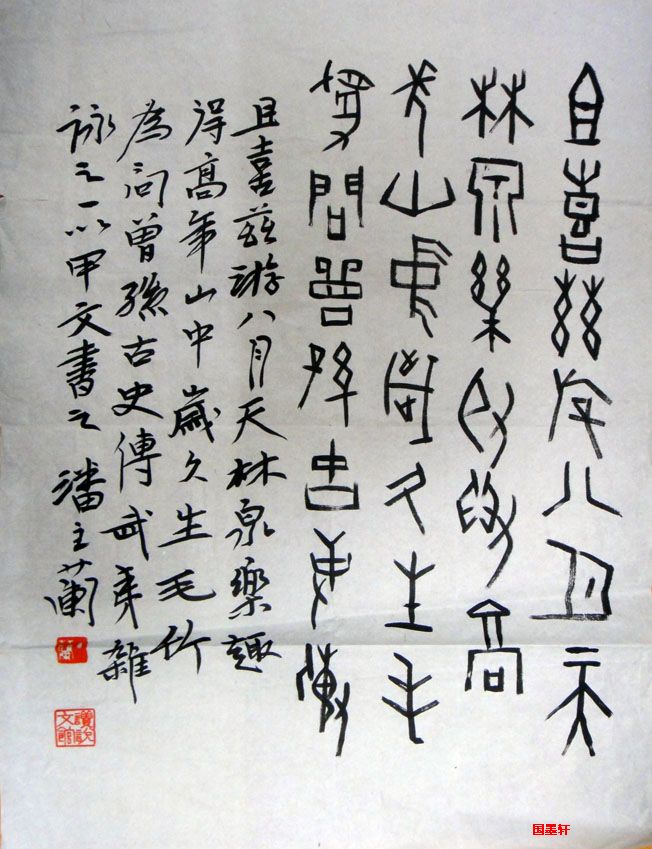 且喜兹游八月天
林泉樂趣得高
年山中歲久生毛
為問曾孫古史傳
且喜兹游八月天林泉樂趣
得高年山中歲久生毛竹
為問曾孫古史傳武夷雜
詠之一以甲文書之 潘主蘭
国墨轩